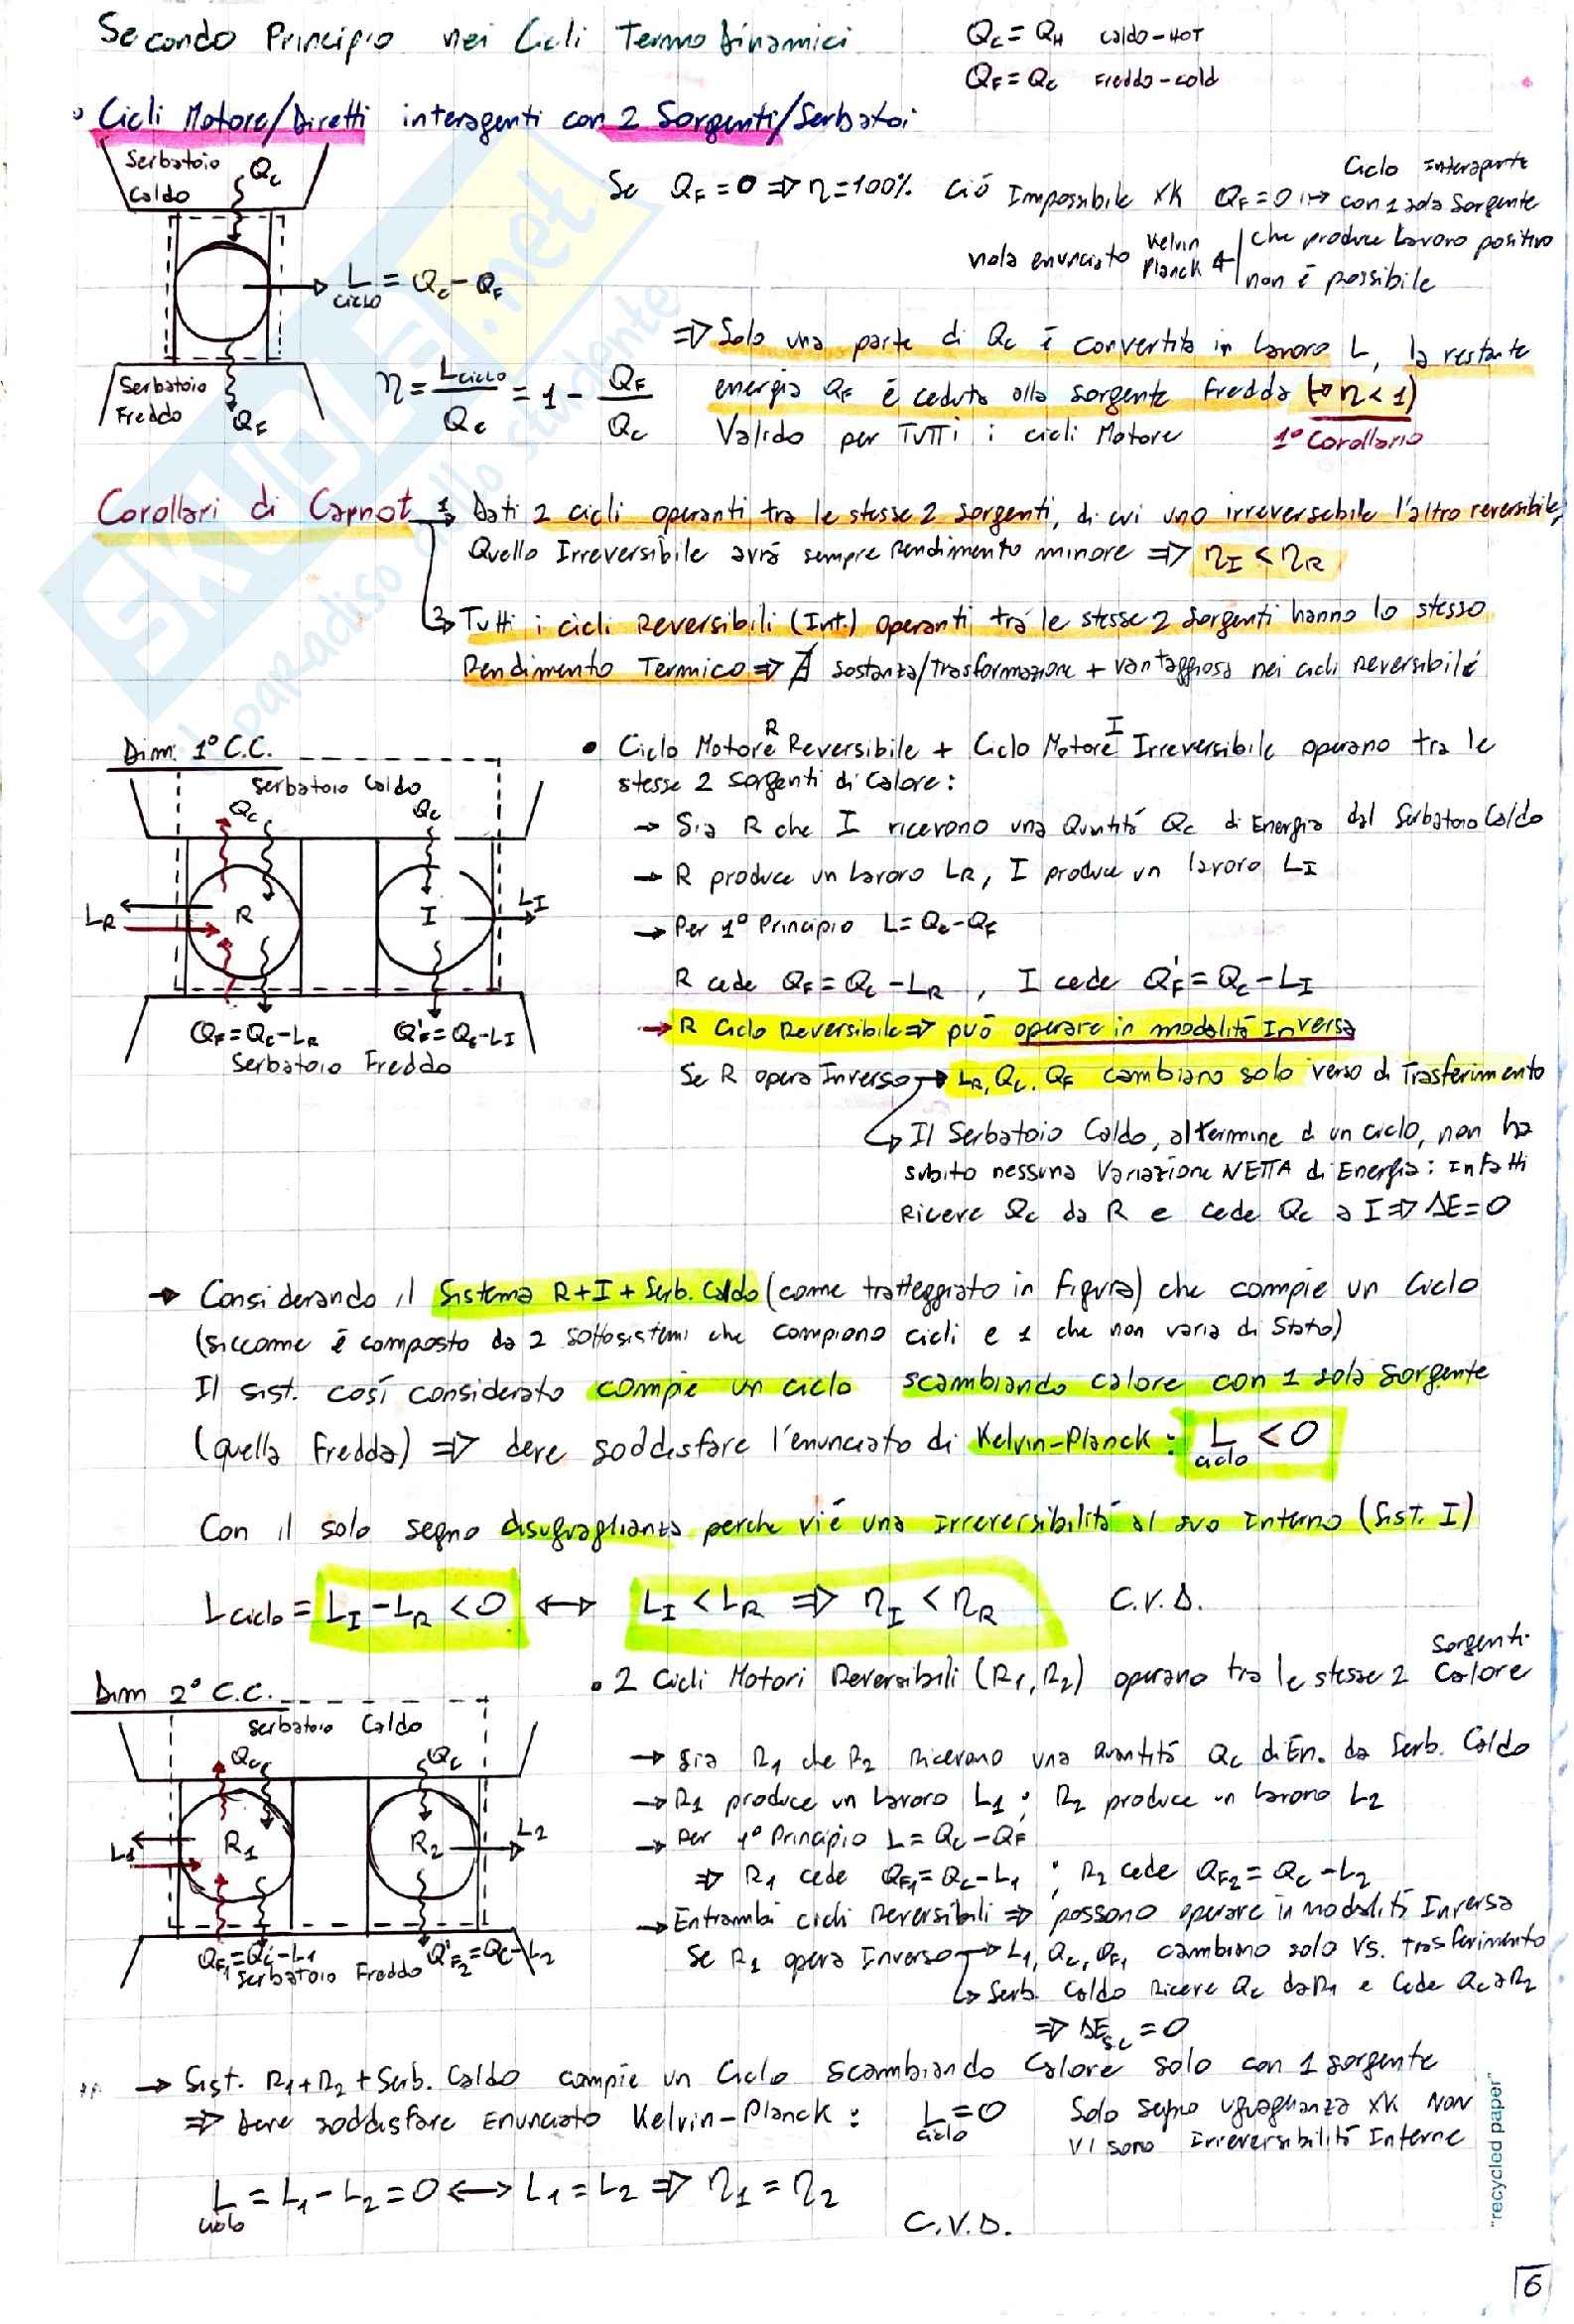 Secondo Principio nei Cicli TermoDinamici
Qc = QH caldo-HOT
QF = Qc Freddo-cold
Cicli Motore/Diretti interagenti con 2 Sorgenti/Serbatoi
Serbatoio Caldo
Qc
L ciclo = Qc - QF
Serbatoio Freddo
QF
η = Lciclo/Qc = 1 - QF/Qc
Se QF = 0 => η = 100% Ciò Impossibile XK QF = 0 ↔ Ciclo Interagente con 1 sola Sorgente
viola enunciato Kelvin Planck che produce Lavoro positivo non è possibile
=> Solo una parte di Qc è convertita in Lavoro L, la restante
energia QF è ceduta alla sorgente Fredda (↔ η < 1)
Valido per TUTTI i cicli Motore 1° Corollario
Corollari di Carnot
1 Dati 2 cicli operanti tra le stesse 2 Sorgenti, di cui uno irreversebile l'altro reversibile,
Quello Irreversibile avrà sempre Rendimento minore => ηI < ηR
2 Tutti i cicli Reversibili (Int.) operanti tra le stesse 2 Sorgenti hanno lo stesso
Rendimento Termico => ∄ sostanza/trasformazione + vantaggiosa nei cicli reversibili
Dim. 1° C.C.
Serbatoio Caldo
Qc Qc
LR R I LI
QF = Qc - LR Q'F = Qc - LI
Serbatoio Freddo
• Ciclo Motore R Reversibile + Ciclo Motore I Irreversibile operano tra le
stesse 2 sorgenti di Calore:
→ Sia R che I ricevono una Quntità Qc di Energia dal Serbatoio Caldo
→ R produce un Lavoro LR, I produce un lavoro LI
→ Per 1° Principio L = Qc - QF
R cede QF = Qc - LR , I cede Q'F = Qc - LI
→ R Ciclo Reversibile => può operare in modalità Inversa
Se R opera Inverso → LR, Qc, QF cambiano solo verso di Trasferimento
↳ Il Serbatoio Caldo, al termine d un ciclo, non ha
subito nessuna Variazione NETTA di Energia: Infatti
Riceve Qc da R e cede Qc a I => ΔE = 0
→ Considerando il Sistema R+I+Serb. Caldo (come tratteggiato in figura) che compie un Ciclo
(siccome è composto da 2 sottosistemi che compiono cicli e 1 che non varia di Stato)
Il sist. così considerato compie un ciclo scambiando calore con 1 sola sorgente
(quella Fredda) => deve soddisfare l'enunciato di Kelvin-Planck: L ciclo < 0
Con il solo segno disuguaglianza perche vi è una Irreversibilità al suo Interno (Sist. I)
Lciclo = LI - LR < 0 ↔ LI < LR => ηI < ηR C.V.D.
Dim 2° C.C.
Serbatoio Caldo
Qc Qc
L1 R1 R2 L2
QF1 = Qc - L1 Q'F2 = Qc - L2
Serbatoio Freddo
• 2 Cicli Motori Reversibili (R1, R2) operano tra le stesse 2 Sorgenti Calore
→ Sia R1 che R2 Ricevono una Quantità Qc di En. da Serb. Caldo
→ R1 produce un Lavoro L1 ; R2 produce un Lavoro L2
→ Per 1° Principio L = Qc - QF
=> R1 cede QF1 = Qc - L1 ; R2 cede QF2 = Qc - L2
→ Entrambi cicli Reversibili => possono operare in modalità Inversa
Se R1 opera Inverso → L1, Qc, QF1 cambiano solo Vs. Trasferimento
↳ Serb. Caldo Riceve Qc da R1 e Cede Qc a R2
=> ΔEsc = 0
→ Sist. R1+R2+Serb. Caldo compie un Ciclo Scambiando Calore solo con 1 sorgente
=> Deve soddisfare Enunciato Kelvin-Planck: L ciclo = 0 Solo segno uguaglianza XK NON
VI sono Irreversibilità Interne
L ciclo = L1 - L2 = 0 ↔ L1 = L2 => η1 = η2
C.V.D.
"recycled paper"
6
SKUOLA.net
il paradiso dello studente